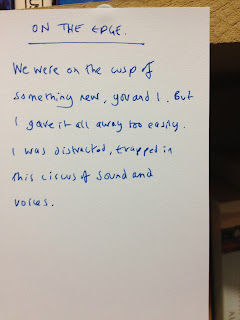 ON THE EDGE.
We were on the cusp of
something new, you and I. But
I gave it all away too easily.
I was distracted, trapped in
this circus of sound and
voices.